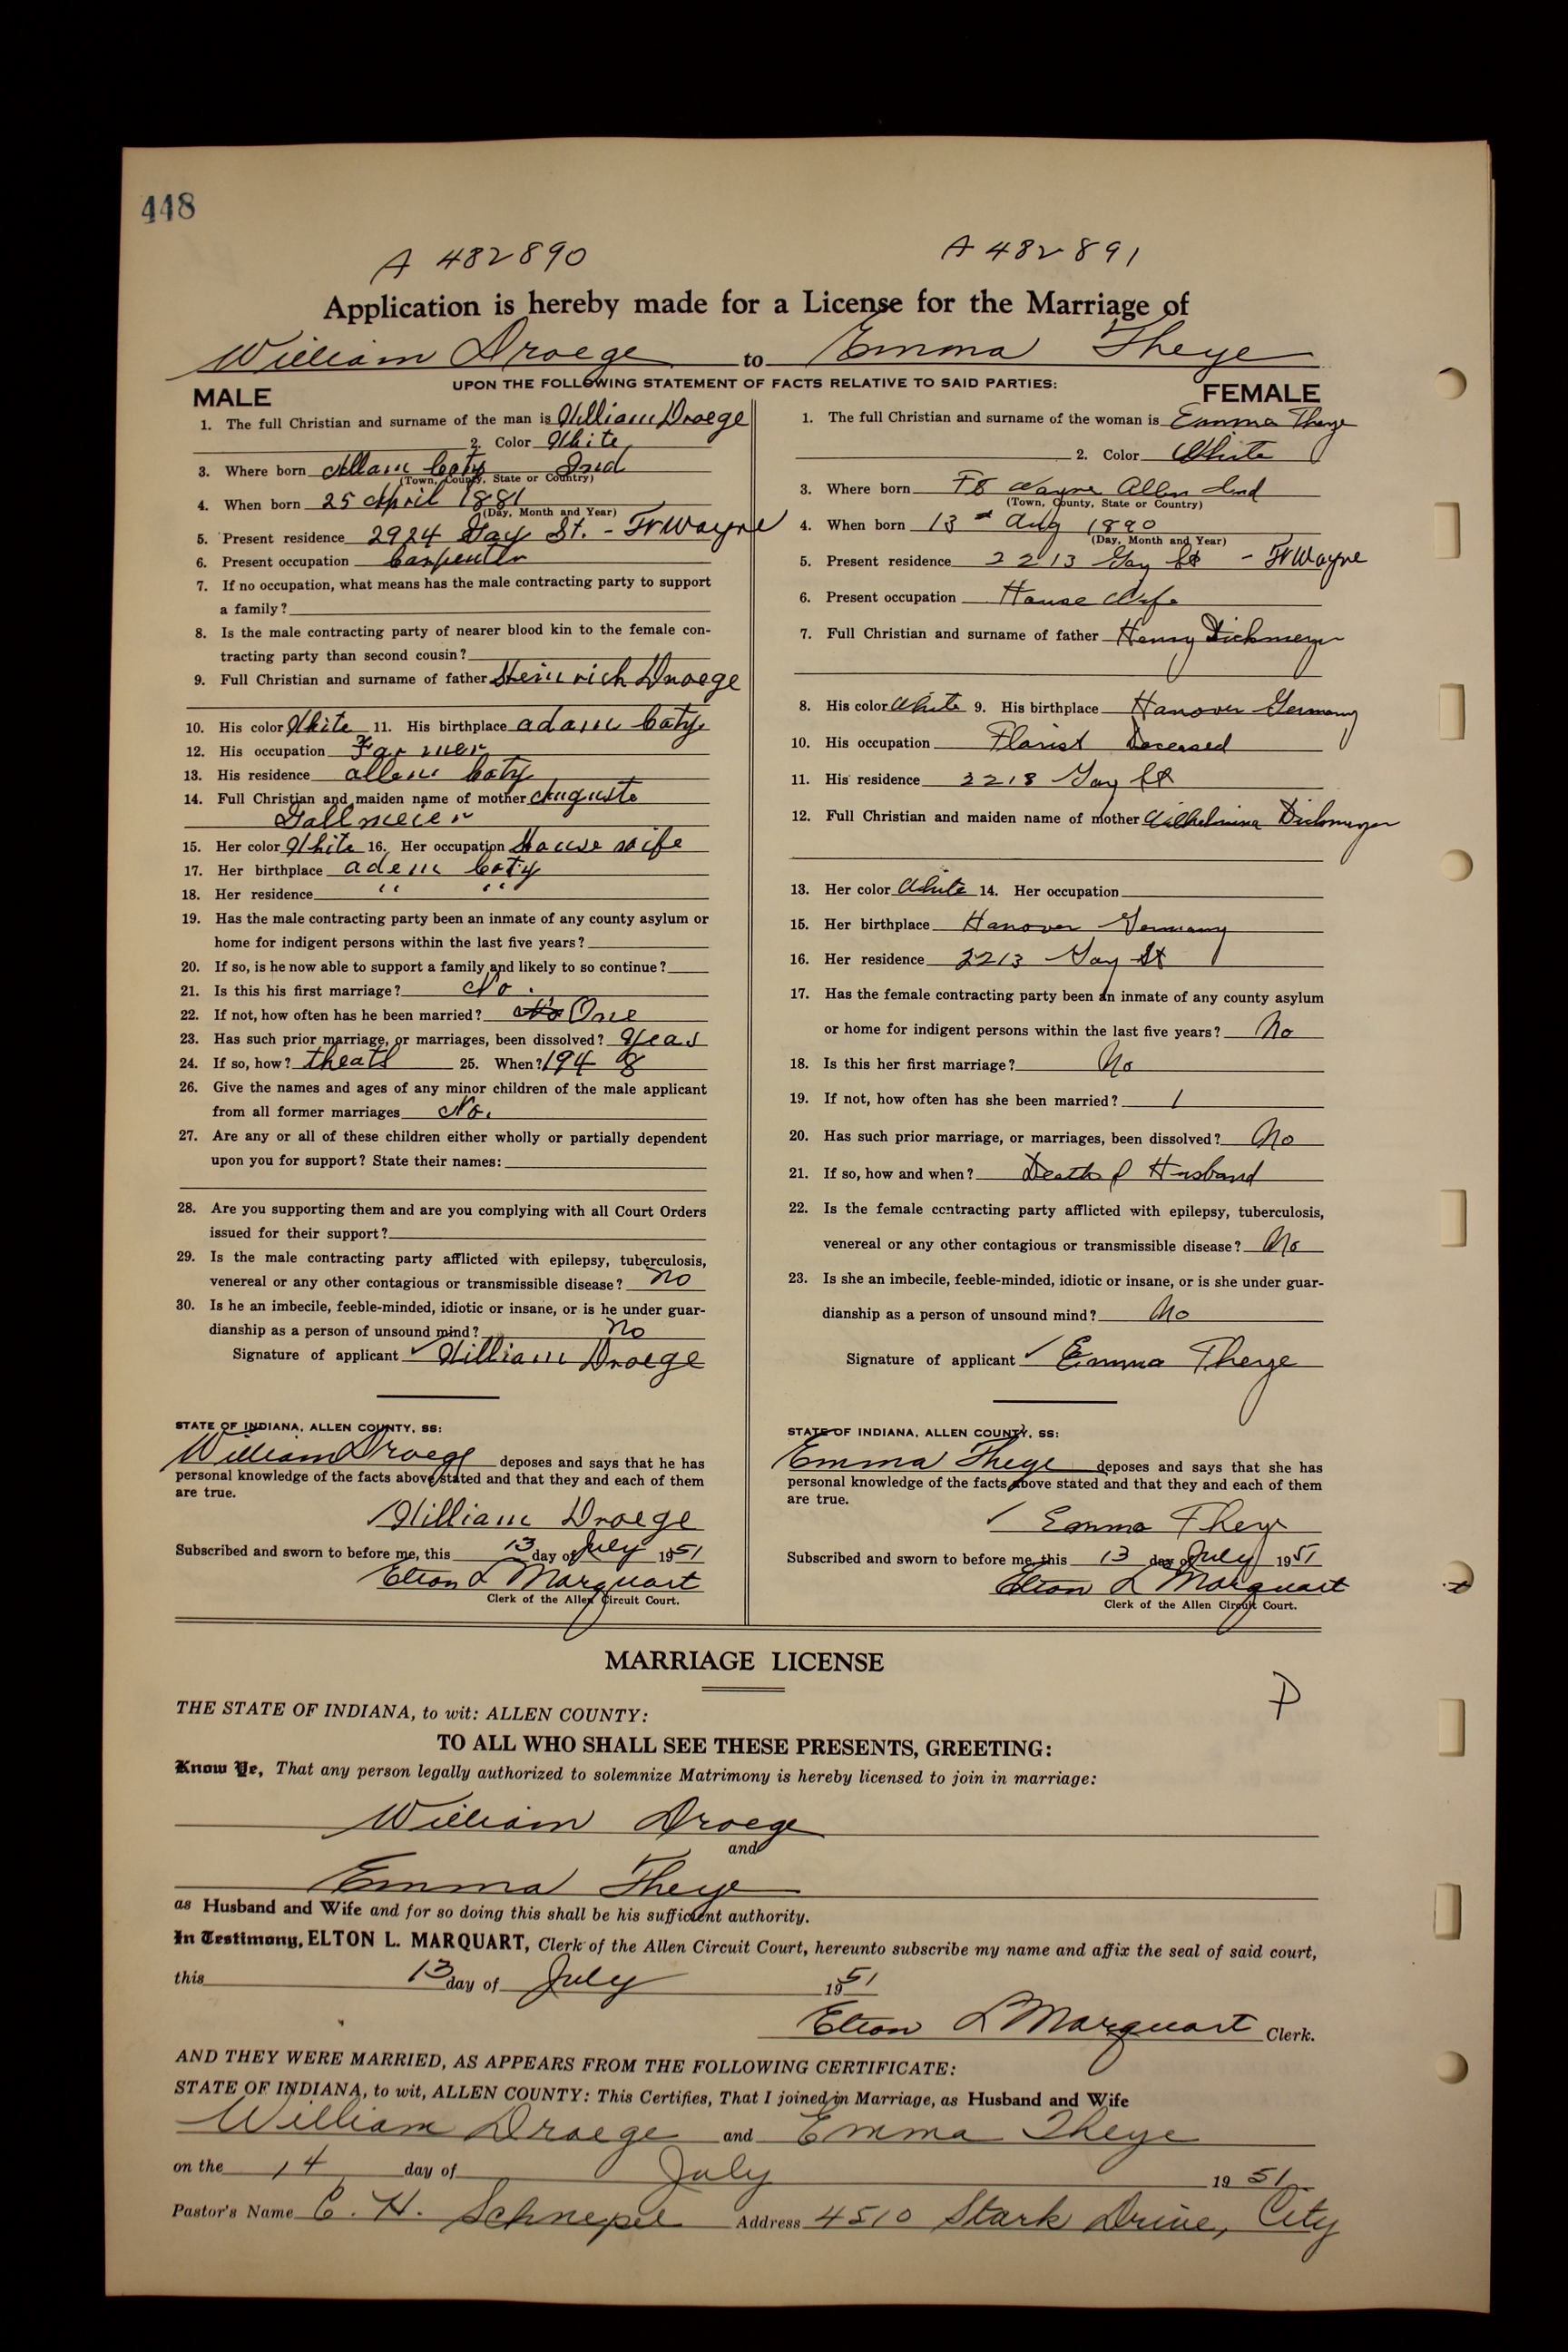 448
A 482890 A 482891
Application is hereby made for a License for the Marriage of
William Droege to Emma Theye
UPON THE FOLLOWING STATEMENT OF FACTS RELATIVE TO SAID PARTIES:
MALE
1. The full Christian and surname of the man is William Droege
2. Color White
3. Where born Allam Coty Ind
(Town, County, State or Country)
4. When born 25 April 1881
(Day, Month and Year)
5. Present residence 2924 Gay St. - Ft Wayne
6. Present occupation Carpenter
7. If no occupation, what means has the male contracting party to support
a family?
8. Is the male contracting party of nearer blood kin to the female con-
tracting party than second cousin?
9. Full Christian and surname of father Heinrich Droege
10. His color White 11. His birthplace adam Coty
12. His occupation Farmer
13. His residence allen Coty
14. Full Christian and maiden name of mother Auguste
Gallmeier
15. Her color White 16. Her occupation House wife
17. Her birthplace adem Coty
18. Her residence " "
19. Has the male contracting party been an inmate of any county asylum or
home for indigent persons within the last five years?
20. If so, is he now able to support a family and likely to so continue?
21. Is this his first marriage? No.
22. If not, how often has he been married? No One
23. Has such prior marriage, or marriages, been dissolved? Yeas
24. If so, how? theath 25. When? 1948
26. Give the names and ages of any minor children of the male applicant
from all former marriages No.
27. Are any or all of these children either wholly or partially dependent
upon you for support? State their names:
28. Are you supporting them and are you complying with all Court Orders
issued for their support?
29. Is the male contracting party afflicted with epilepsy, tuberculosis,
venereal or any other contagious or transmissible disease? no
30. Is he an imbecile, feeble-minded, idiotic or insane, or is he under guar-
dianship as a person of unsound mind? no
Signature of applicant William Droege
STATE OF INDIANA, ALLEN COUNTY, SS:
William Droege deposes and says that he has
personal knowledge of the facts above stated and that they and each of them
are true.
William Droege
Subscribed and sworn to before me, this 13 day of July 1951
Elton L Marquart
Clerk of the Allen Circuit Court.
FEMALE
1. The full Christian and surname of the woman is Emma Theye
2. Color White
3. Where born Ft Wayne Allen Ind
(Town, County, State or Country)
4. When born 13 Aug 1890
(Day, Month and Year)
5. Present residence 2213 Gay St - Ft Wayne
6. Present occupation House Wife
7. Full Christian and surname of father Henry Dickmeyer
8. His color White 9. His birthplace Hanover Germany
10. His occupation Florist Deceased
11. His residence 2218 Gay St
12. Full Christian and maiden name of mother Wilhelmina Dickmeyer
13. Her color White 14. Her occupation
15. Her birthplace Hanover Germany
16. Her residence 2213 Gay St
17. Has the female contracting party been an inmate of any county asylum
or home for indigent persons within the last five years? No
18. Is this her first marriage? No
19. If not, how often has she been married? 1
20. Has such prior marriage, or marriages, been dissolved? No
21. If so, how and when? Death of Husband
22. Is the female contracting party afflicted with epilepsy, tuberculosis,
venereal or any other contagious or transmissible disease? No
23. Is she an imbecile, feeble-minded, idiotic or insane, or is she under guar-
dianship as a person of unsound mind? No
Signature of applicant Emma Theye
STATE OF INDIANA, ALLEN COUNTY, SS:
Emma Theye deposes and says that she has
personal knowledge of the facts above stated and that they and each of them
are true.
Emma Theye
Subscribed and sworn to before me, this 13 day of July 1951
Elton L Marquart
Clerk of the Allen Circuit Court.
MARRIAGE LICENSE
P
THE STATE OF INDIANA, to wit: ALLEN COUNTY:
TO ALL WHO SHALL SEE THESE PRESENTS, GREETING:
Know Ye, That any person legally authorized to solemnize Matrimony is hereby licensed to join in marriage:
William Droege
and
Emma Theye
as Husband and Wife and for so doing this shall be his sufficient authority.
In Testimony, ELTON L. MARQUART, Clerk of the Allen Circuit Court, hereunto subscribe my name and affix the seal of said court,
this 13 day of July 1951
Elton L Marquart Clerk.
AND THEY WERE MARRIED, AS APPEARS FROM THE FOLLOWING CERTIFICATE:
STATE OF INDIANA, to wit, ALLEN COUNTY: This Certifies, That I joined in Marriage, as Husband and Wife
William Droege and Emma Theye
on the 14 day of July 1951
Pastor's Name C. H. Schnepel Address 4510 Stark Drive, City